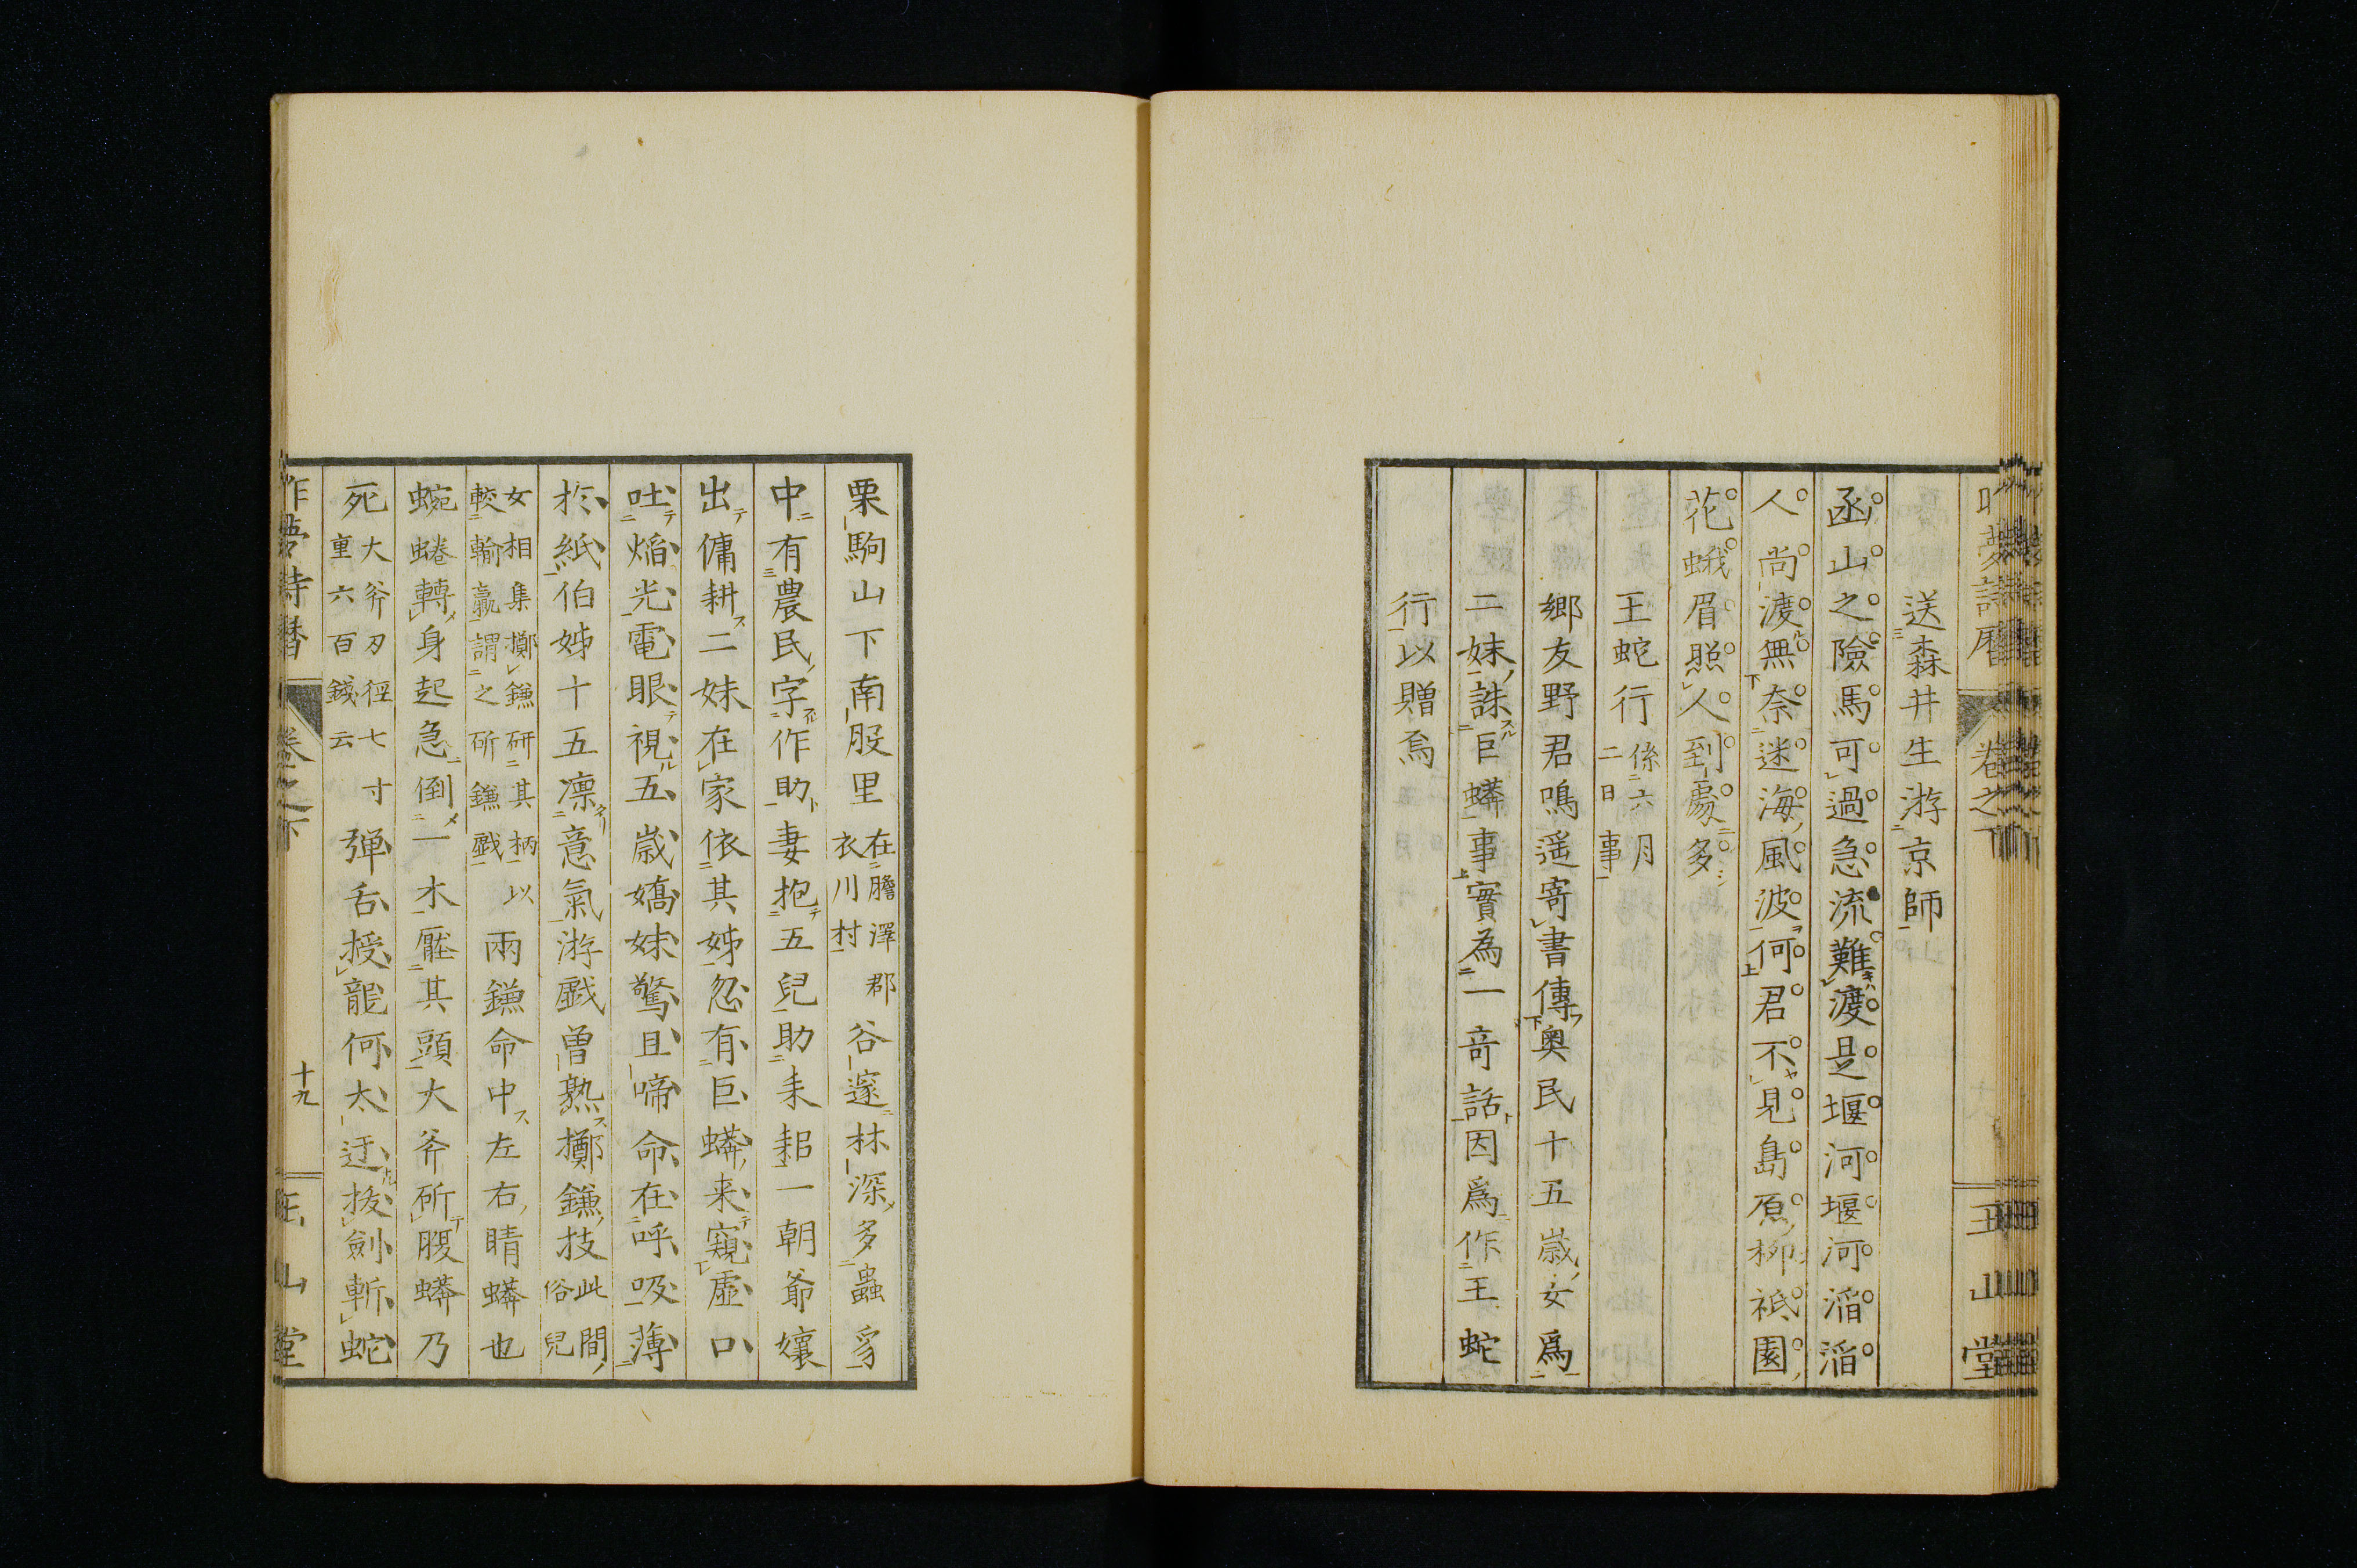 送森井生游京師
函山之險馬可過急流難渡是堰河堰河滔滔
人尚渡無奈迷海風波何君不見島原柳祗園
花蛾眉照人到處多
王蛇行係六月二日事
鄉友野君鳴遥寄書傳奥民十五歳女爲
二妹誅巨蟒事實為一竒話因爲作王蛇
行以贈焉
卷之下
玉山堂
栗駒山下南股里在膽澤郡衣川村谷邃林深多蟲豸
中有農民字作助妻抱五兒助耒耜一朝爺孃
出傭耕二妹在家依其姊忽有巨蟒来窺虛口
吐熖光電眼視五歳嬌妹驚且啼命在呼吸薄
於紙伯姊十五凛意氣游戯曽熟擲鎌技此間俗兒
女相集擲鎌斫其柄以較輸贏謂之斫鎌戯兩鎌命中左右睛蟒也
蜿蜷轉身起急倒一木壓其頭大斧斫腹蟒乃
死大斧刃徑七寸重六百錢云弾舌授龍何太迂拔劍斬蛇
昨夢詩暦
卷之下
十九
玉山堂